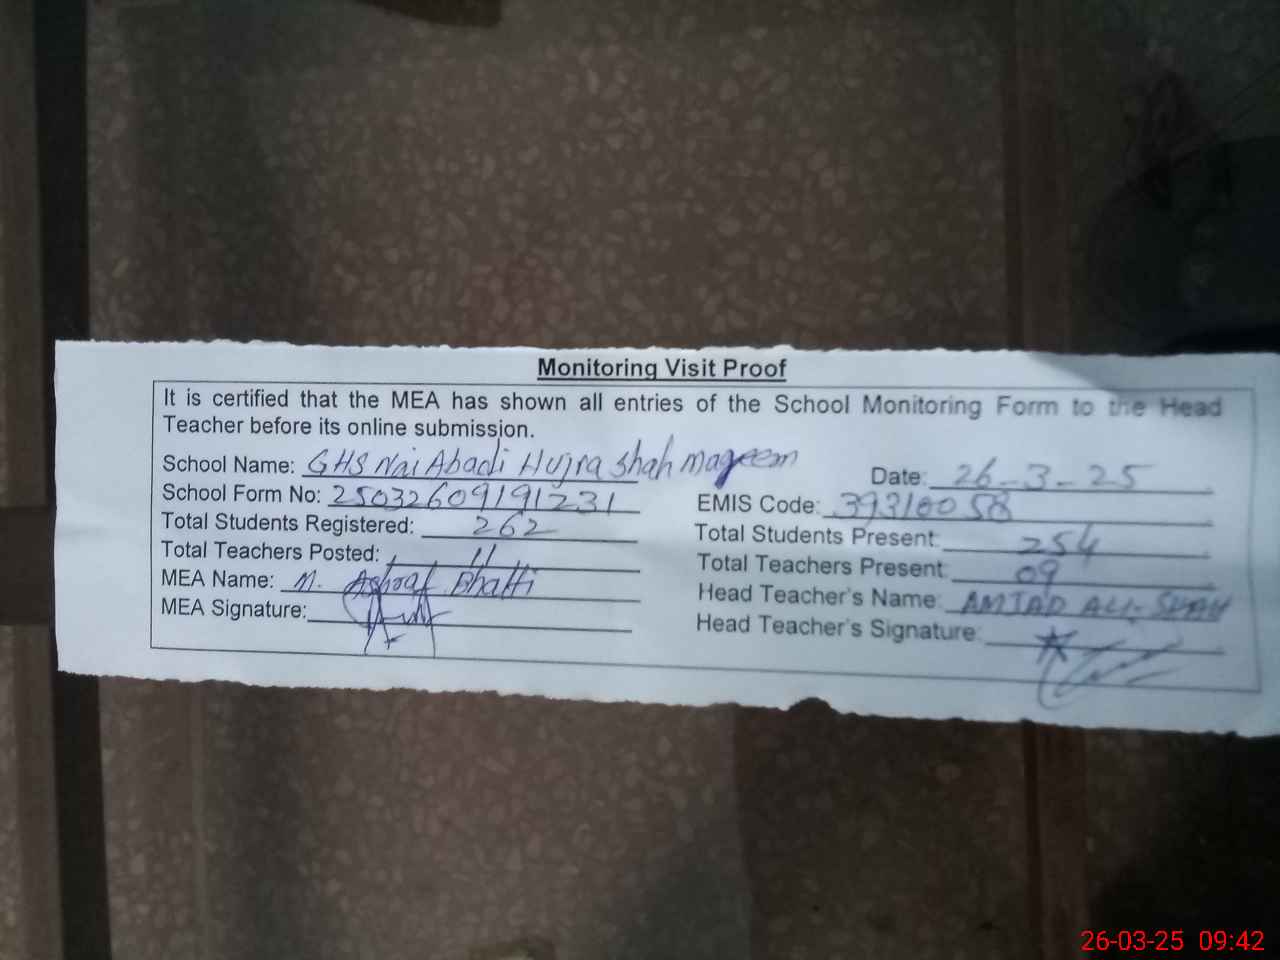 Monitoring Visit Proof
It is certified that the MEA has shown all entries of the School Monitoring Form to the Head
Teacher before its online submission.
School Name: GHS Nai Abadi Hujra Shah mageem
Date: 26-3-25
School Form No: 25032609191231
EMIS Code: 39310058
Total Students Registered: 262
Total Students Present: 254
Total Teachers Posted: 11
Total Teachers Present: 09
MEA Name: M. Ashraf Bhatti
Head Teacher's Name: AMJAD ALI SHAH
MEA Signature:
Head Teacher's Signature:
26-03-25 09:42